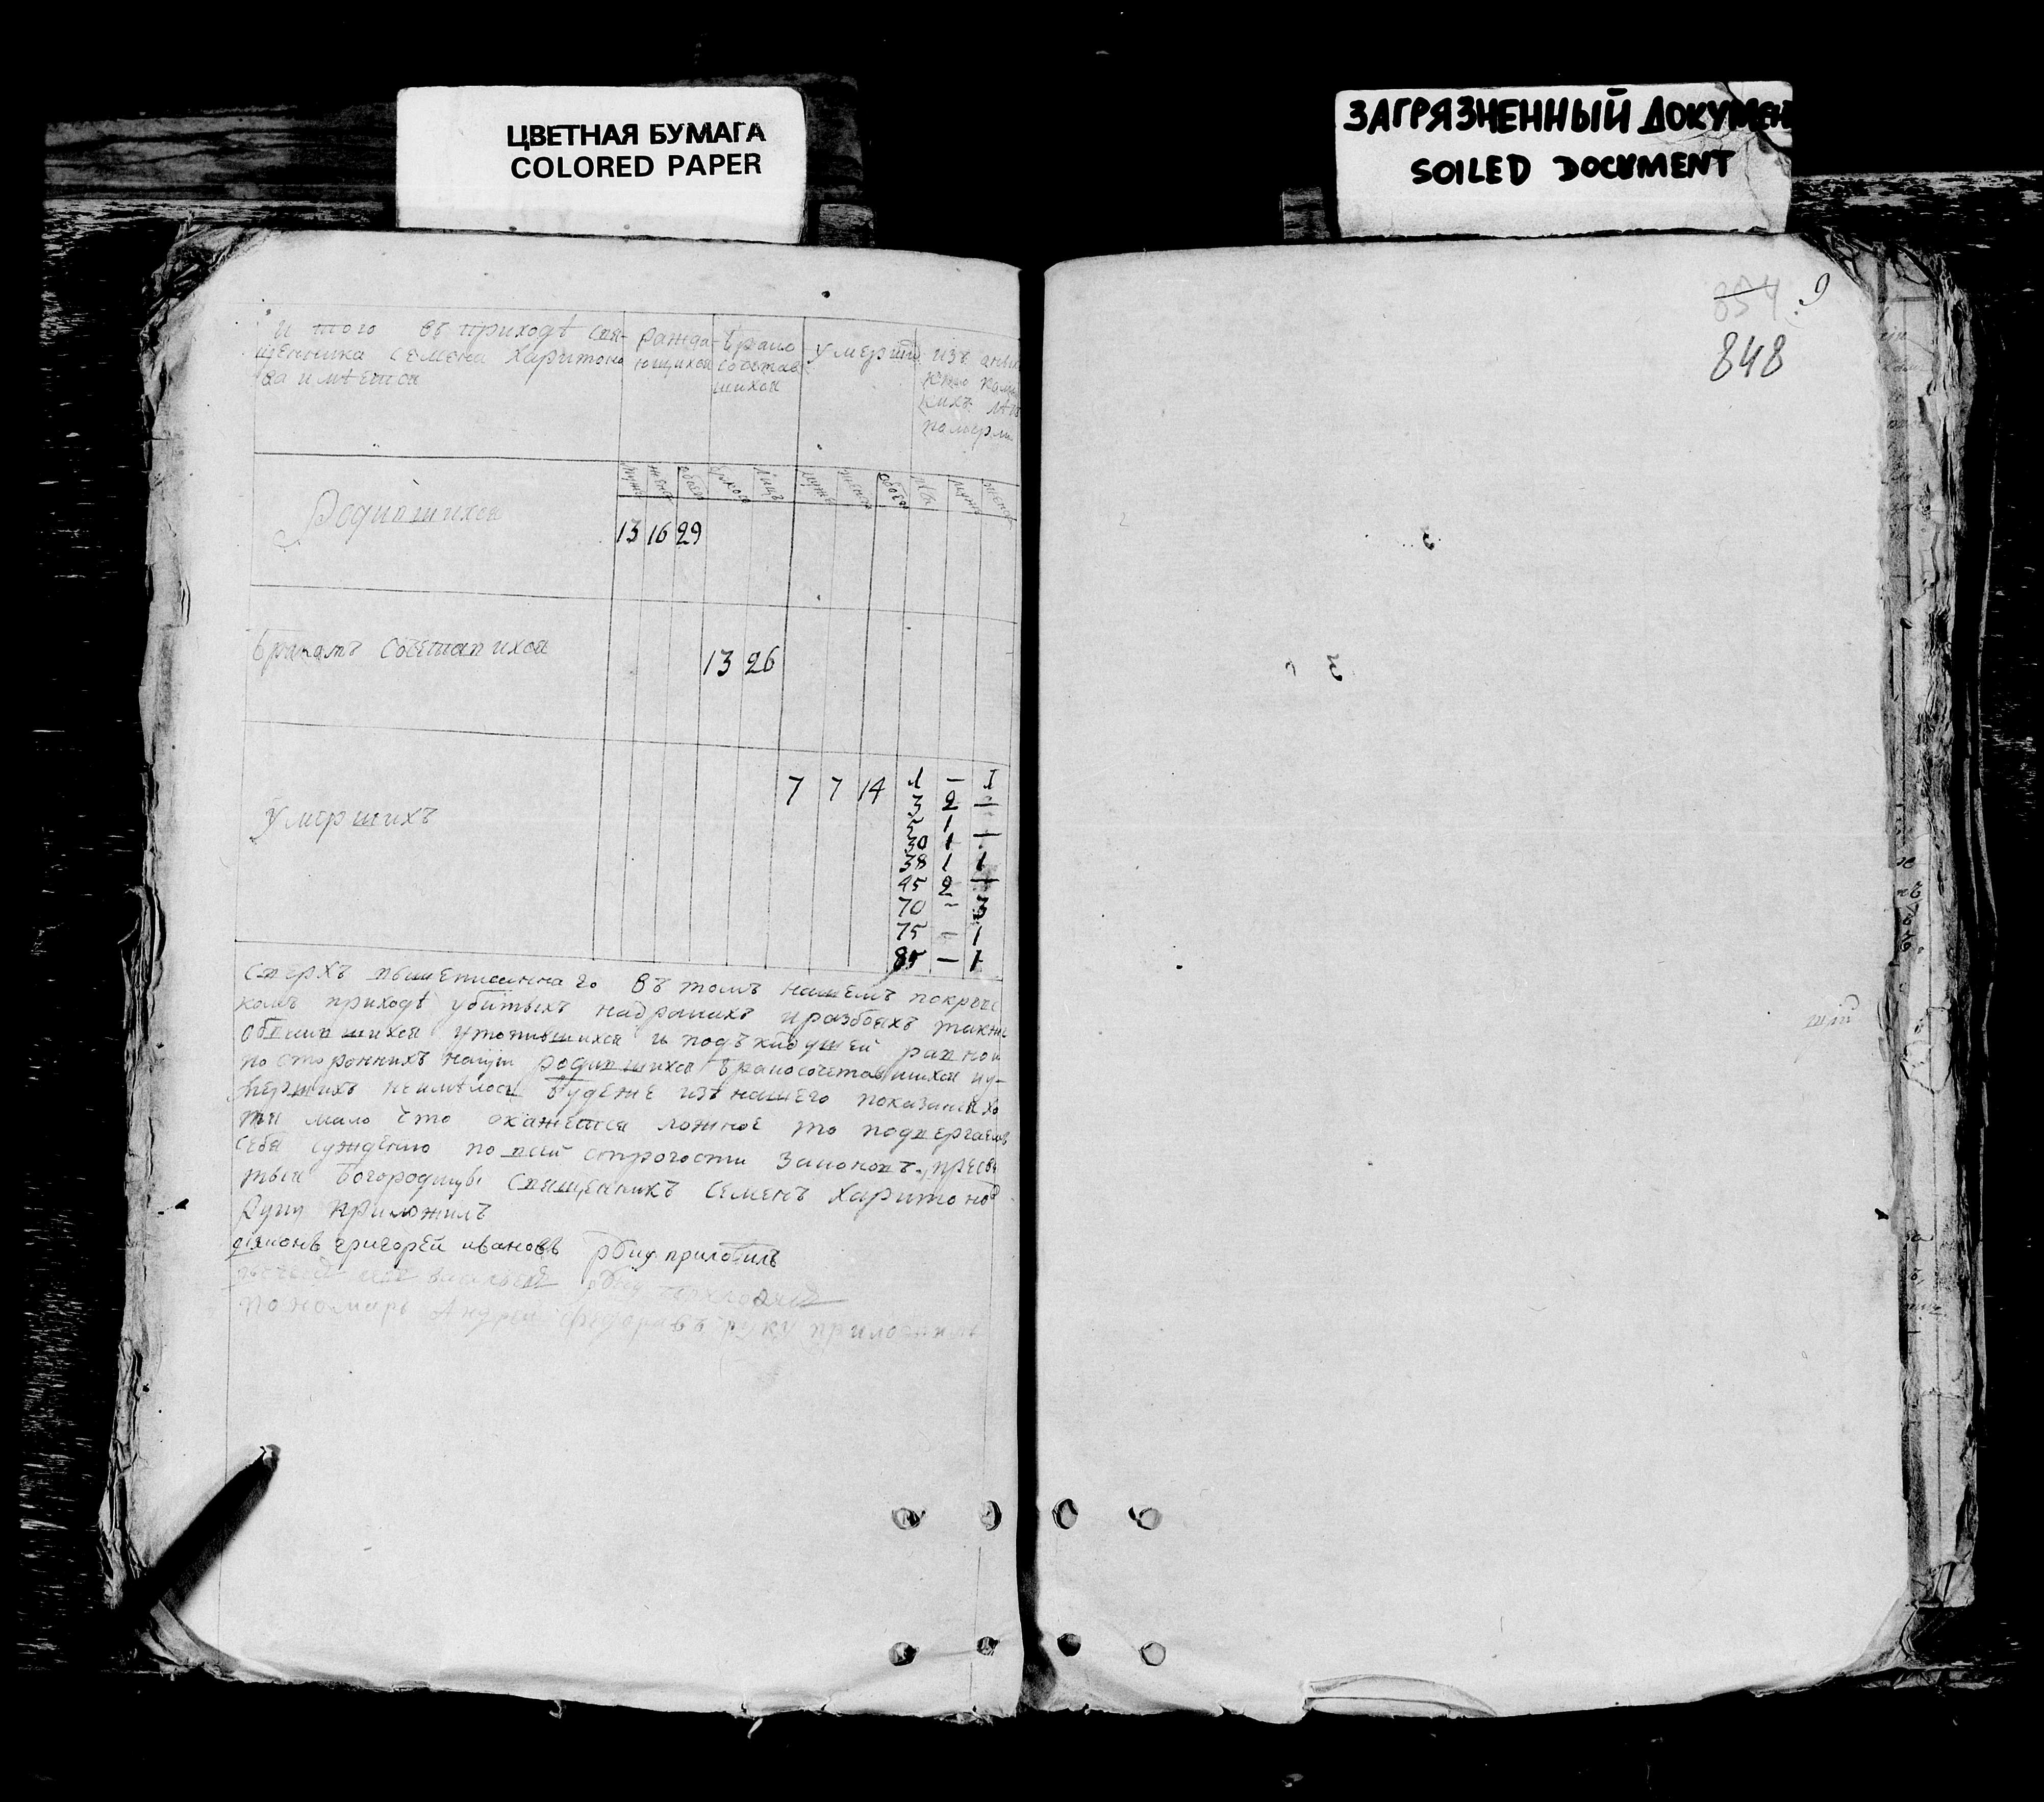 ЦВЕТНАЯ БУМАГА
COLORED PAPER
ЗАГРЯЗНЕННЫЙ ДОКУМЕН
SOILED DOCUMENT
9
854
848
и того въ приходѣ свя-
щенника семена харитоно
ва имѣетса
ражда
ющихся
брако
сочетав
шихся
умерши
изъ
кихъ лѣтъ
померли
мужс женс обоег браков лицъ мужс женск обоег лѣт мужс женск
Родившихся
13 16 29
бракамъ сочетавшихся
13 26
Умершихъ
7 7 14 1 — 1
3 2 —
5 1 —
30 1 —
38 1 1
45 2 —
70 — 3
75 — 1
85 — 1
сверхъ вышеписаннаго въ томъ нашемъ покровс
комъ приходѣ убитыхъ надракахъ иразбояхъ такжe
утопившихся и подъ равно и
постороннихъ родившихся бракосочетавшихся иу-
мершихъ неимѣлось буде изъ нашего показания хо
тя мало что окажется ложное то подвергаемъ
себя суждению по всей строгости законовъ, пресвя
тыя богородицы священникъ семенъ харитонов
руку приложилъ
дияконъ григорей ивановъ руку приложилъ
васильев руку приложил
пономарь Андрей федоравъ руку приложилъ